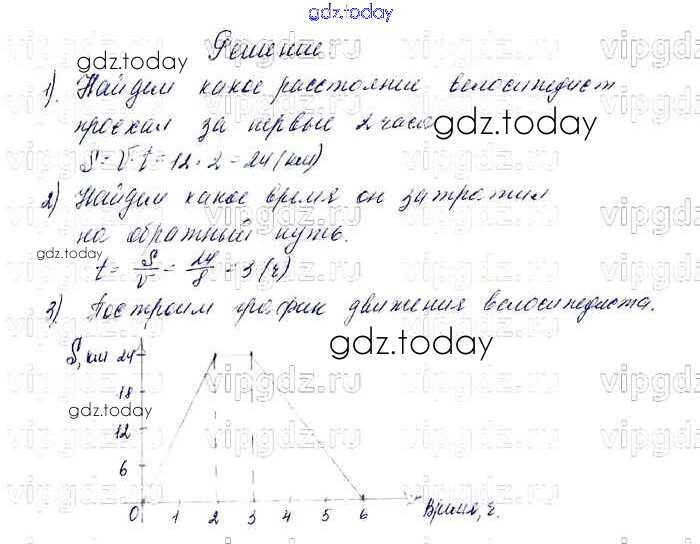 gdz.today
Решение
1). Найдем какое расстояние велосипедист
проехал за первые 2 часа
S = V·t = 12 · 2 = 24 (км)
2) Найдем какое время он затратил
на обратный путь.
t = S/V = 24/8 = 3 (ч)
3) Построим график движения велосипедиста.
S, км 24
18
12
6
0 1 2 3 4 5 6 Время, ч.
gdz.today
gdz.today
gdz.today
gdz.today
gdz.today
vipgdz.ru
vipgdz.ru
vipgdz.ru